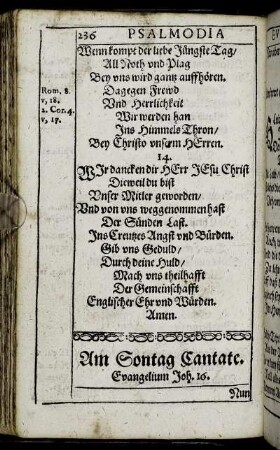 236 PSALMODIA
Wenn kompt der liebe Jüngste Tag/
All Noth vnd Plag
Bey vns wird gantz auffhören.
Dagegen Frewd
Rom. 8.
v. 18.
2. Cor. 4.
v. 17.
Vnd Herrlichkeit
Wir werden han
Ins Himmels Thron/
Bey Christo vnserm HErren.
14.
WIr dancken dir HErr JEsu Christ
Dieweil du bist
Vnser Mitler geworden/
Vnd von vns weggenommen hast
Der Sünden Last.
Ins Creutzes Angst vnd Bürden.
Gib vns Geduld/
Durch deine Huld/
Mach vns theilhafft
Der Gemeinschafft
Englischer Ehr vnd Würden.
Amen.
Am Sontag Cantate.
Evangelium Joh. 16.
Nun